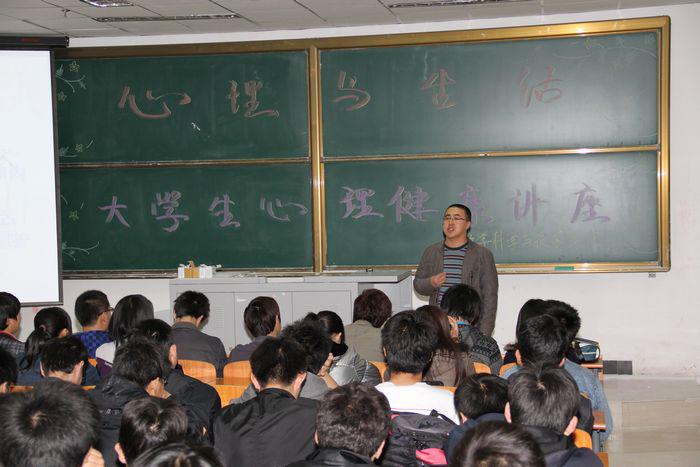 心理与生活
大学生心理健康讲座